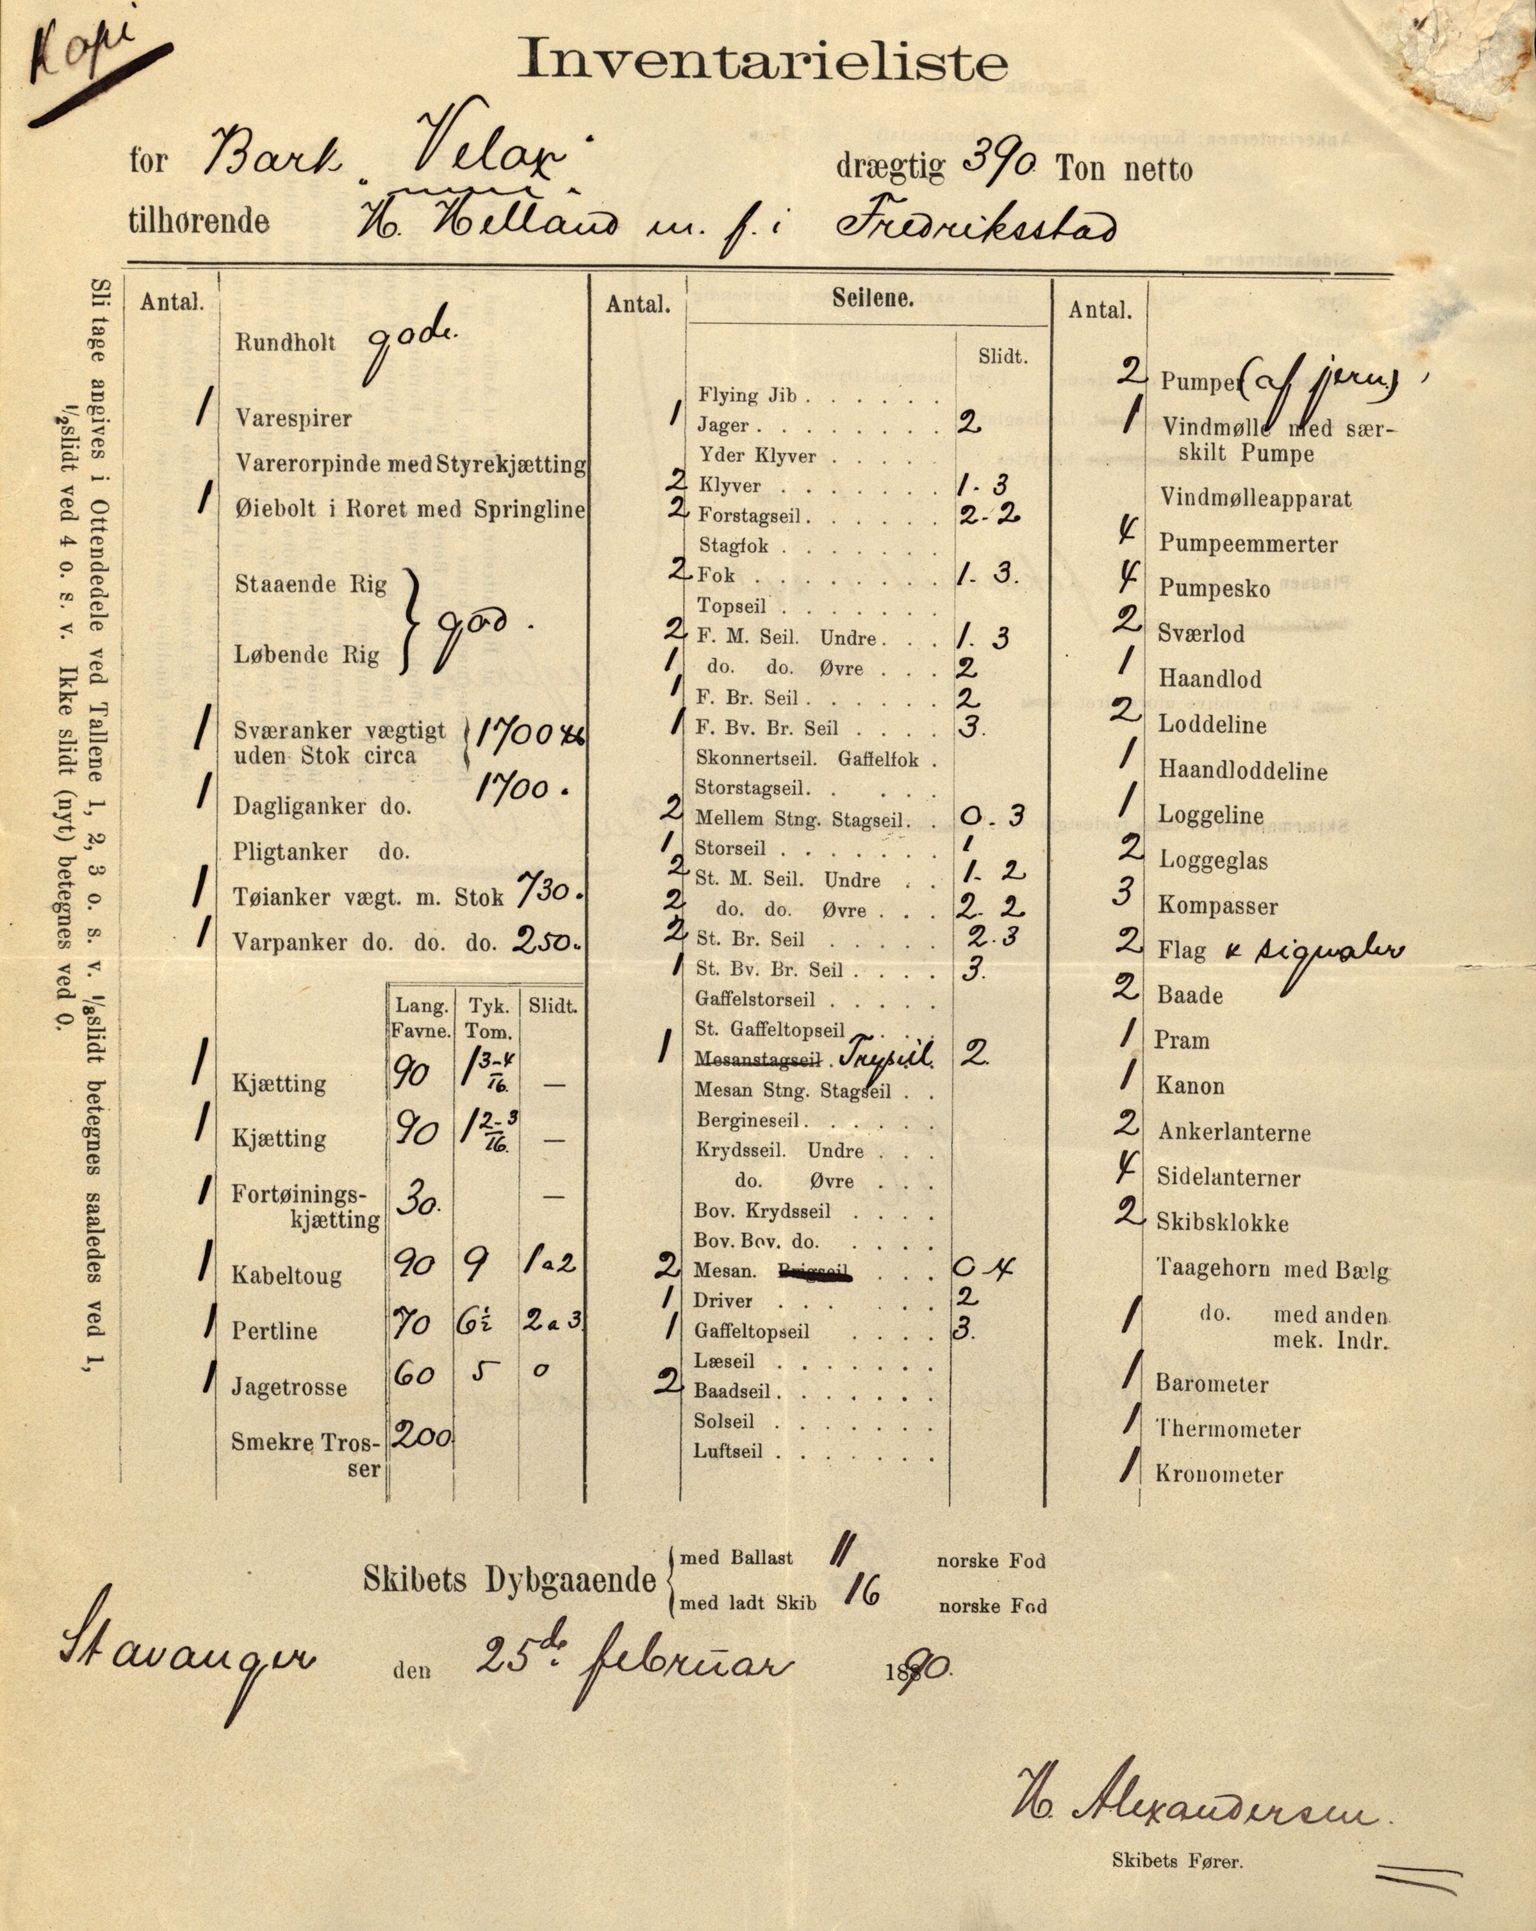 Kopi
Inventarieliste
for Bark „Velox" drægtig 390 Ton netto
tilhørende H. Helland m. f. i Fredriksstad
Slitage angives i Ottendedele ved Tallene 1, 2, 3 o. s. v. 1/8 slidt betegnes saaledes ved 1,
1/2 slidt ved 4 o. s. v. Ikke slidt (nyt) betegnes ved 0.
Antal.
Rundholt gode.
1 Varespirer
Varerorpinde med Styrekjætting
1 Øiebolt i Roret med Springline
Staaende Rig
Løbende Rig } god.
1 Sværanker vægtigt
uden Stok circa { 1700 ℔
1 Dagliganker do. 1700.
Pligtanker do.
1 Tøianker vægt. m. Stok 730.
1 Varpanker do. do. do. 250.
Lang. Tyk. Slidt.
Favne. Tom.
1 Kjætting 90 1 3-4/16. —
1 Kjætting 90 1 2-3/16. —
1 Fortøinings-
kjætting 30. —
1 Kabeltoug 90 9 1 a 2
1 Pertline 70 6½ 2 a 3.
1 Jagetrosse 60 5 0
Smekre Tros-
ser 200
Antal. Seilene.
Slidt.
Flying Jib . . . . . .
1 Jager . . . . . . . . 2
Yder Klyver . . . . .
2 Klyver . . . . . . . 1. 3
2 Forstagseil . . . . . . 2-2
Stagfok . . . . . . .
2 Fok . . . . . . . . 1. 3.
Topseil . . . . . . .
2 F. M. Seil. Undre . . . 1. 3
1 do. do. Øvre . . . 2
1 F. Br. Seil . . . . . . 2
1 F. Bv. Br. Seil . . . . 3.
Skonnertseil. Gaffelfok .
Storstagseil. . . . .
2 Mellem Stng. Stagseil. . 0. 3
1 Storseil . . . . . . . 1
2 St. M. Seil. Undre . . 1. 2
2 do. do. Øvre . . . 2. 2
2 St. Br. Seil . . . . . 2. 3
1 St. Bv. Br. Seil . . . . 3.
Gaffelstorseil . . . . .
St. Gaffeltopseil . . .
1 Mesanstagseil . Tryseil. 2.
Mesan Stng. Stagseil . .
Bergineseil. . . . . .
Krydsseil. Undre . . .
do. Øvre . . .
Bov. Krydsseil . . . .
Bov. Bov. do. . . . .
2 Mesan. Brigseil . . . 0 4
1 Driver . . . . . . 2
1 Gaffeltopseil . . . . 3.
Læseil . . . . . . .
2 Baadseil . . . . . . .
Solseil . . . . . . .
Luftseil . . . . . . .
Antal.
2 Pumper (af jern)
1 Vindmølle med sær-
skilt Pumpe
Vindmølleapparat
4 Pumpeemmerter
4 Pumpesko
2 Sværlod
1 Haandlod
2 Loddeline
1 Haandloddeline
1 Loggeline
2 Loggeglas
3 Kompasser
2 Flag & signaler
2 Baade
1 Pram
1 Kanon
2 Ankerlanterne
4 Sidelanterner
2 Skibsklokke
Taagehorn med Bælg
1 do. med anden
mek. Indr.
1 Barometer
1 Thermometer
1 Kronometer
Skibets Dybgaaende { med Ballast 11 norske Fod
med ladt Skib 16 norske Fod
Stavanger den 25de februar 1890.
H. Alexandersen.
Skibets Fører.